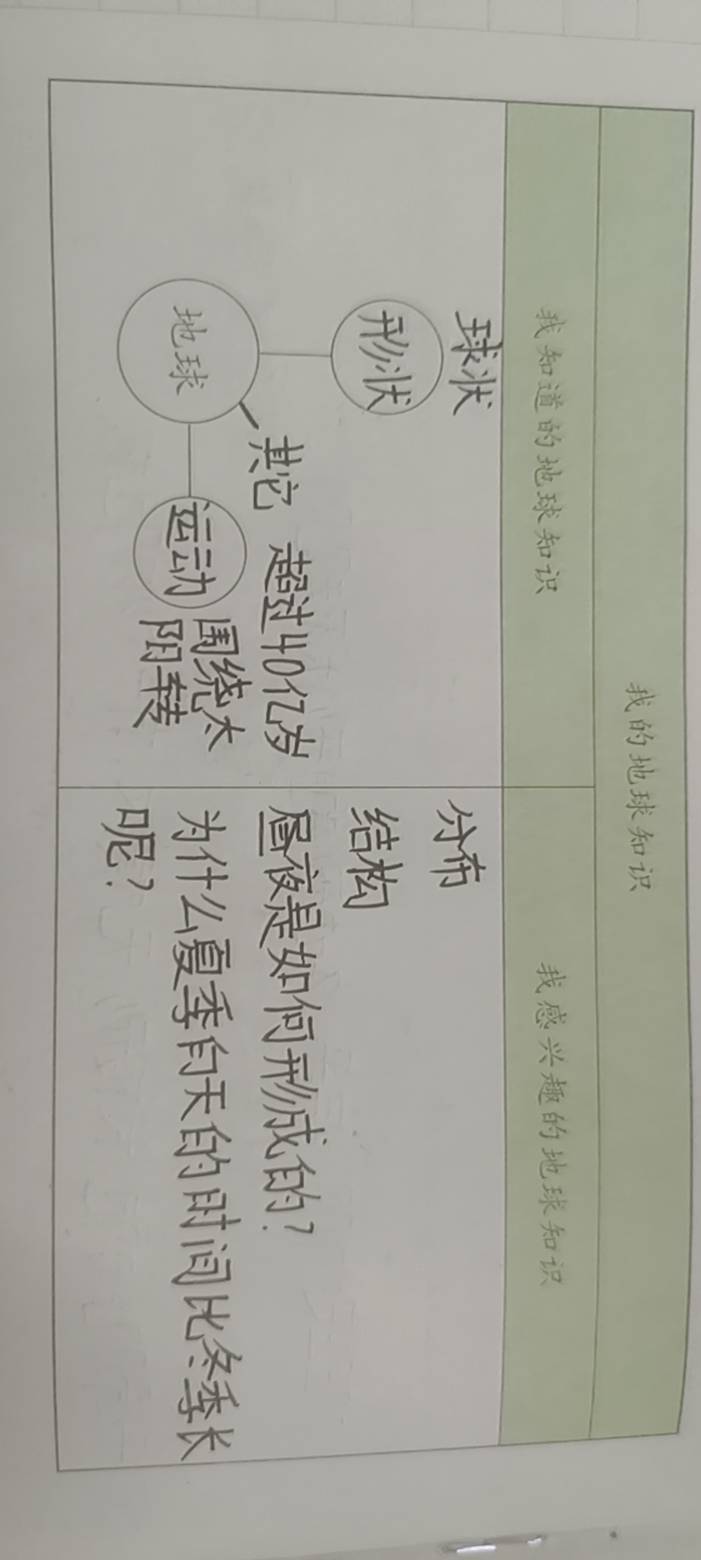 我的地球知识
我知道的地球知识
我感兴趣的地球知识
球状
形状
地球
其它 超过40亿岁
运动
围绕太
阳转
分布
结构
昼夜是如何形成的？
为什么夏季白天的时间比冬季长
呢？